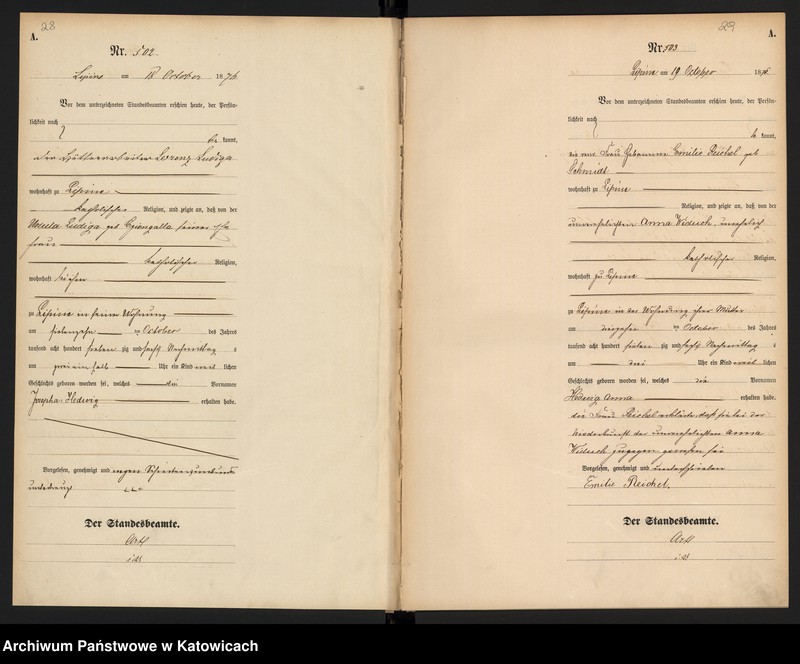 28
A.
Nr. 502.
Lipine am 18 October 1876
Vor dem unterzeichneten Standesbeamten erschien heute, der Persön-
lichkeit nach
be kannt,
der Hüttenarbeiter Lorenz Ludiga
wohnhaft zu Lipine
katholischer Religion, und zeigte an, daß von der
Ludiga geb seiner Ehe
frau
katholischer Religion,
wohnhaft bei ihm
zu Lipine in seiner Wohnung
am siebenzehn ten October des Jahres
tausend acht hundert sieben zig und sechs Nachmittag s
um zwei ein halb Uhr ein Kind weib lichen
Geschlechts geboren worden sei, welches die Vornamen
Josepha Hedwig erhalten habe.
Vorgelesen, genehmigt und wegen Schreibensunkunde
unterkreuzt
+++
Der Standesbeamte.
29
A.
Nr. 503
Lipine am 19 October 1876.
Vor dem unterzeichneten Standesbeamten erschien heute, der Persön-
lichkeit nach
be kannt,
die verw Frau Hebamme Emilie Reichel geb
Schmidt
wohnhaft zu Lipine
Religion, und zeigte an, daß von der
unverehelichten Anna
katholischer Religion,
wohnhaft zu Lipine
zu Lipine in der Wohnung ihrer Mutter
am ten October des Jahres
tausend acht hundert sieben zig und sechs Nachmittag s
um drei Uhr ein Kind weib lichen
Geschlechts geboren worden sei, welches die Vornamen
Hedwig Anna erhalten habe.
die Frau Reichel erklärte, daß sie bei der
Niederkunft der unverehelichten Anna
zugegen gewesen sei
Vorgelesen, genehmigt und unterschrieben
Emilie Reichel.
Der Standesbeamte.
Archiwum Państwowe w Katowicach